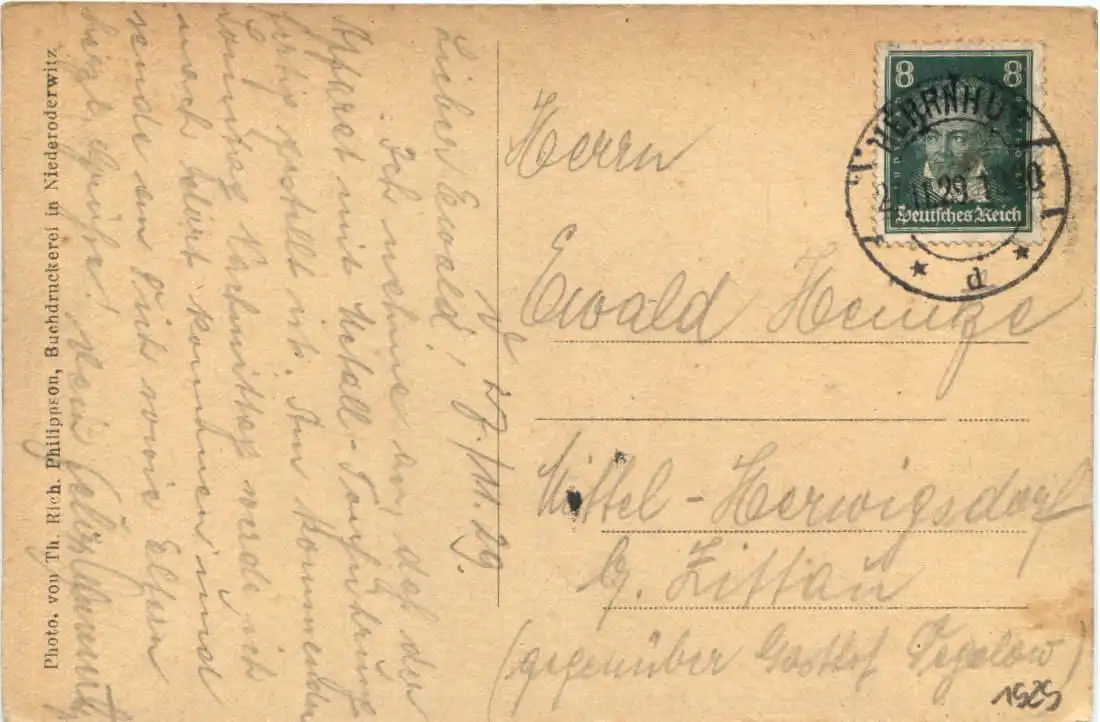 27./11.29.
Lieber Ewald!
Ich nehme an, daß der
Apparat mit Metall-
fertig gestellt ist. Am kommenden
Sonntag Nachmittag werde ich
nach dort kommen und
sende an Dich sowie Eltern
herzl. Grüße! Dein
Photo. von Th. Rich. Philippson, Buchdruckerei in Niederoderwitz
8 8
Deutsches Reich
HERRNHUT
11.29.1
d
Herrn
Ewald Heinze
Mittel-Herwigsdorf
b. Zittau
(gegenüber Gasthof Tegelow)
1929